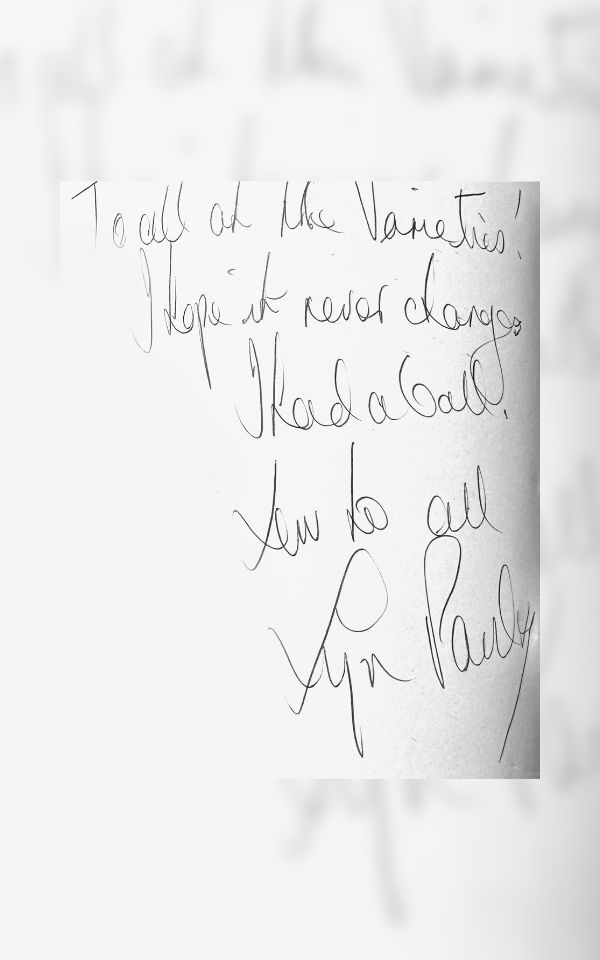 To all at the Varieties!
I hope it never changes
I had a Ball!
Luv to all
Lyn Paul x